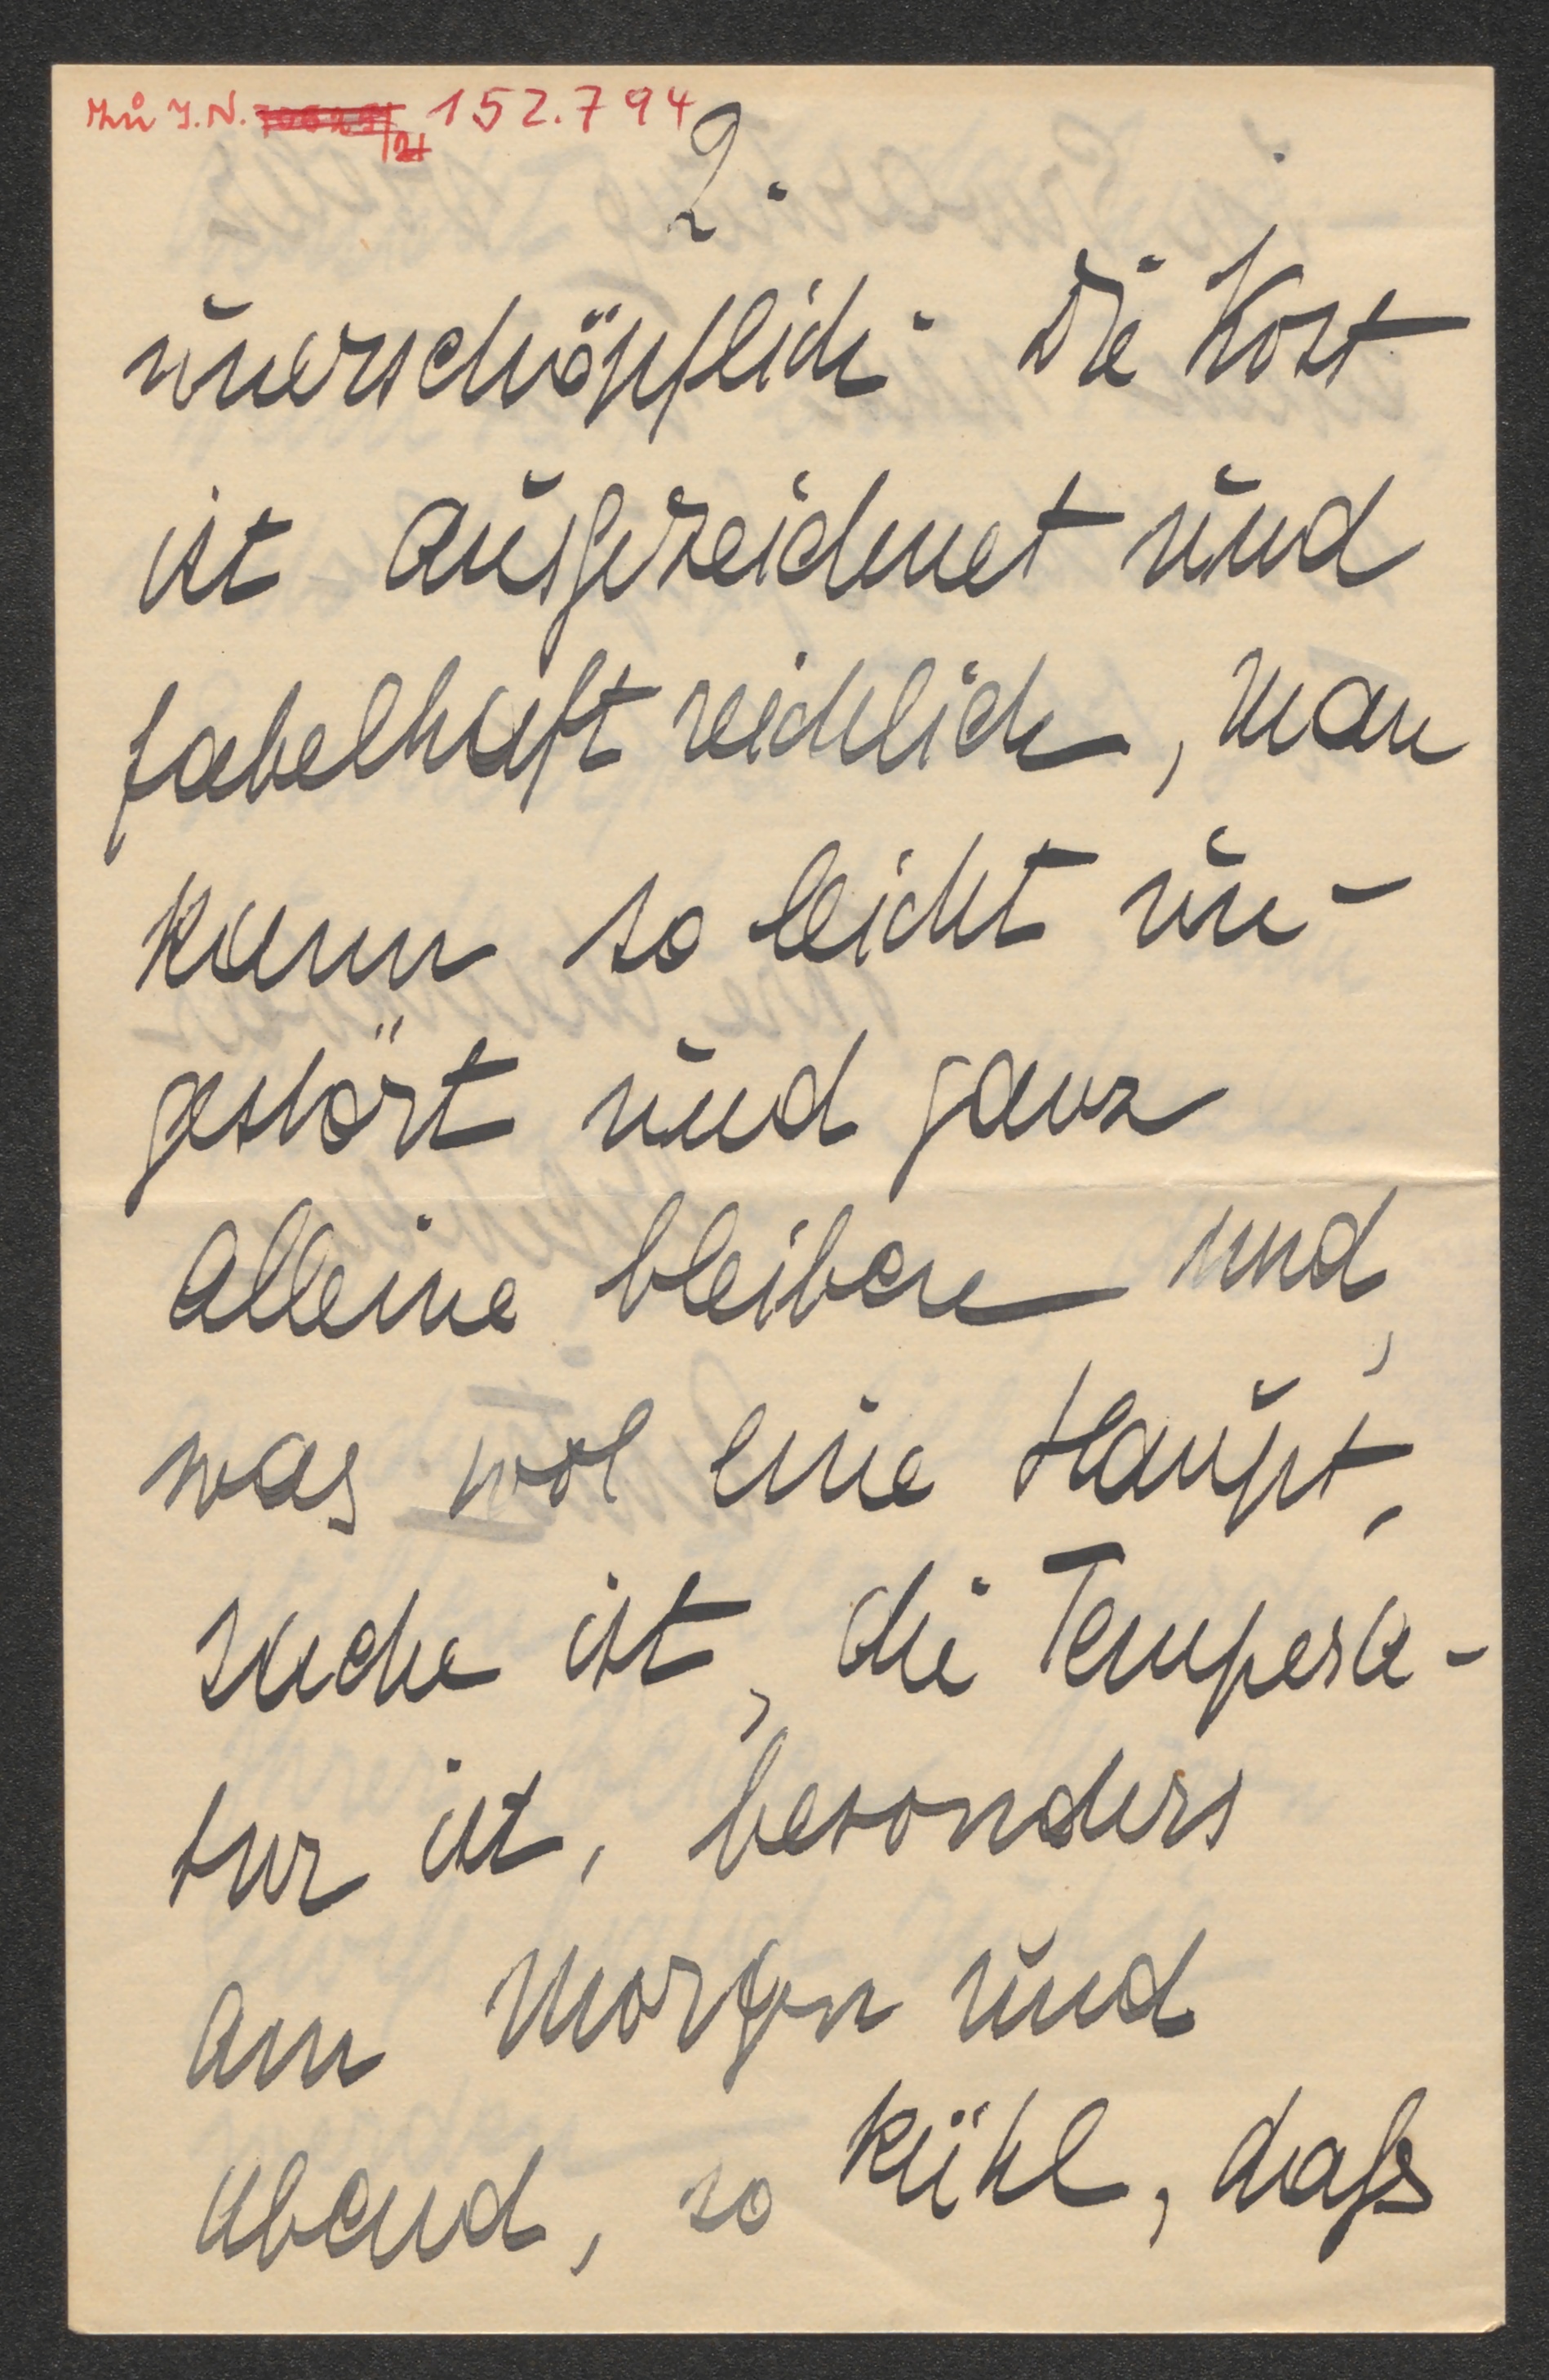 J.N. 152.794
2.
unerschöpflich. Die Kost
ist ausgezeichnet und
fabelhaft reichlich, man
kann so leicht un-
gestört und ganz
alleine bleiben und,
was wol eine Haupt-
sache ist, die Tempera-
tur ist, besonders
am Morgen und
Abend, so kühl, daß